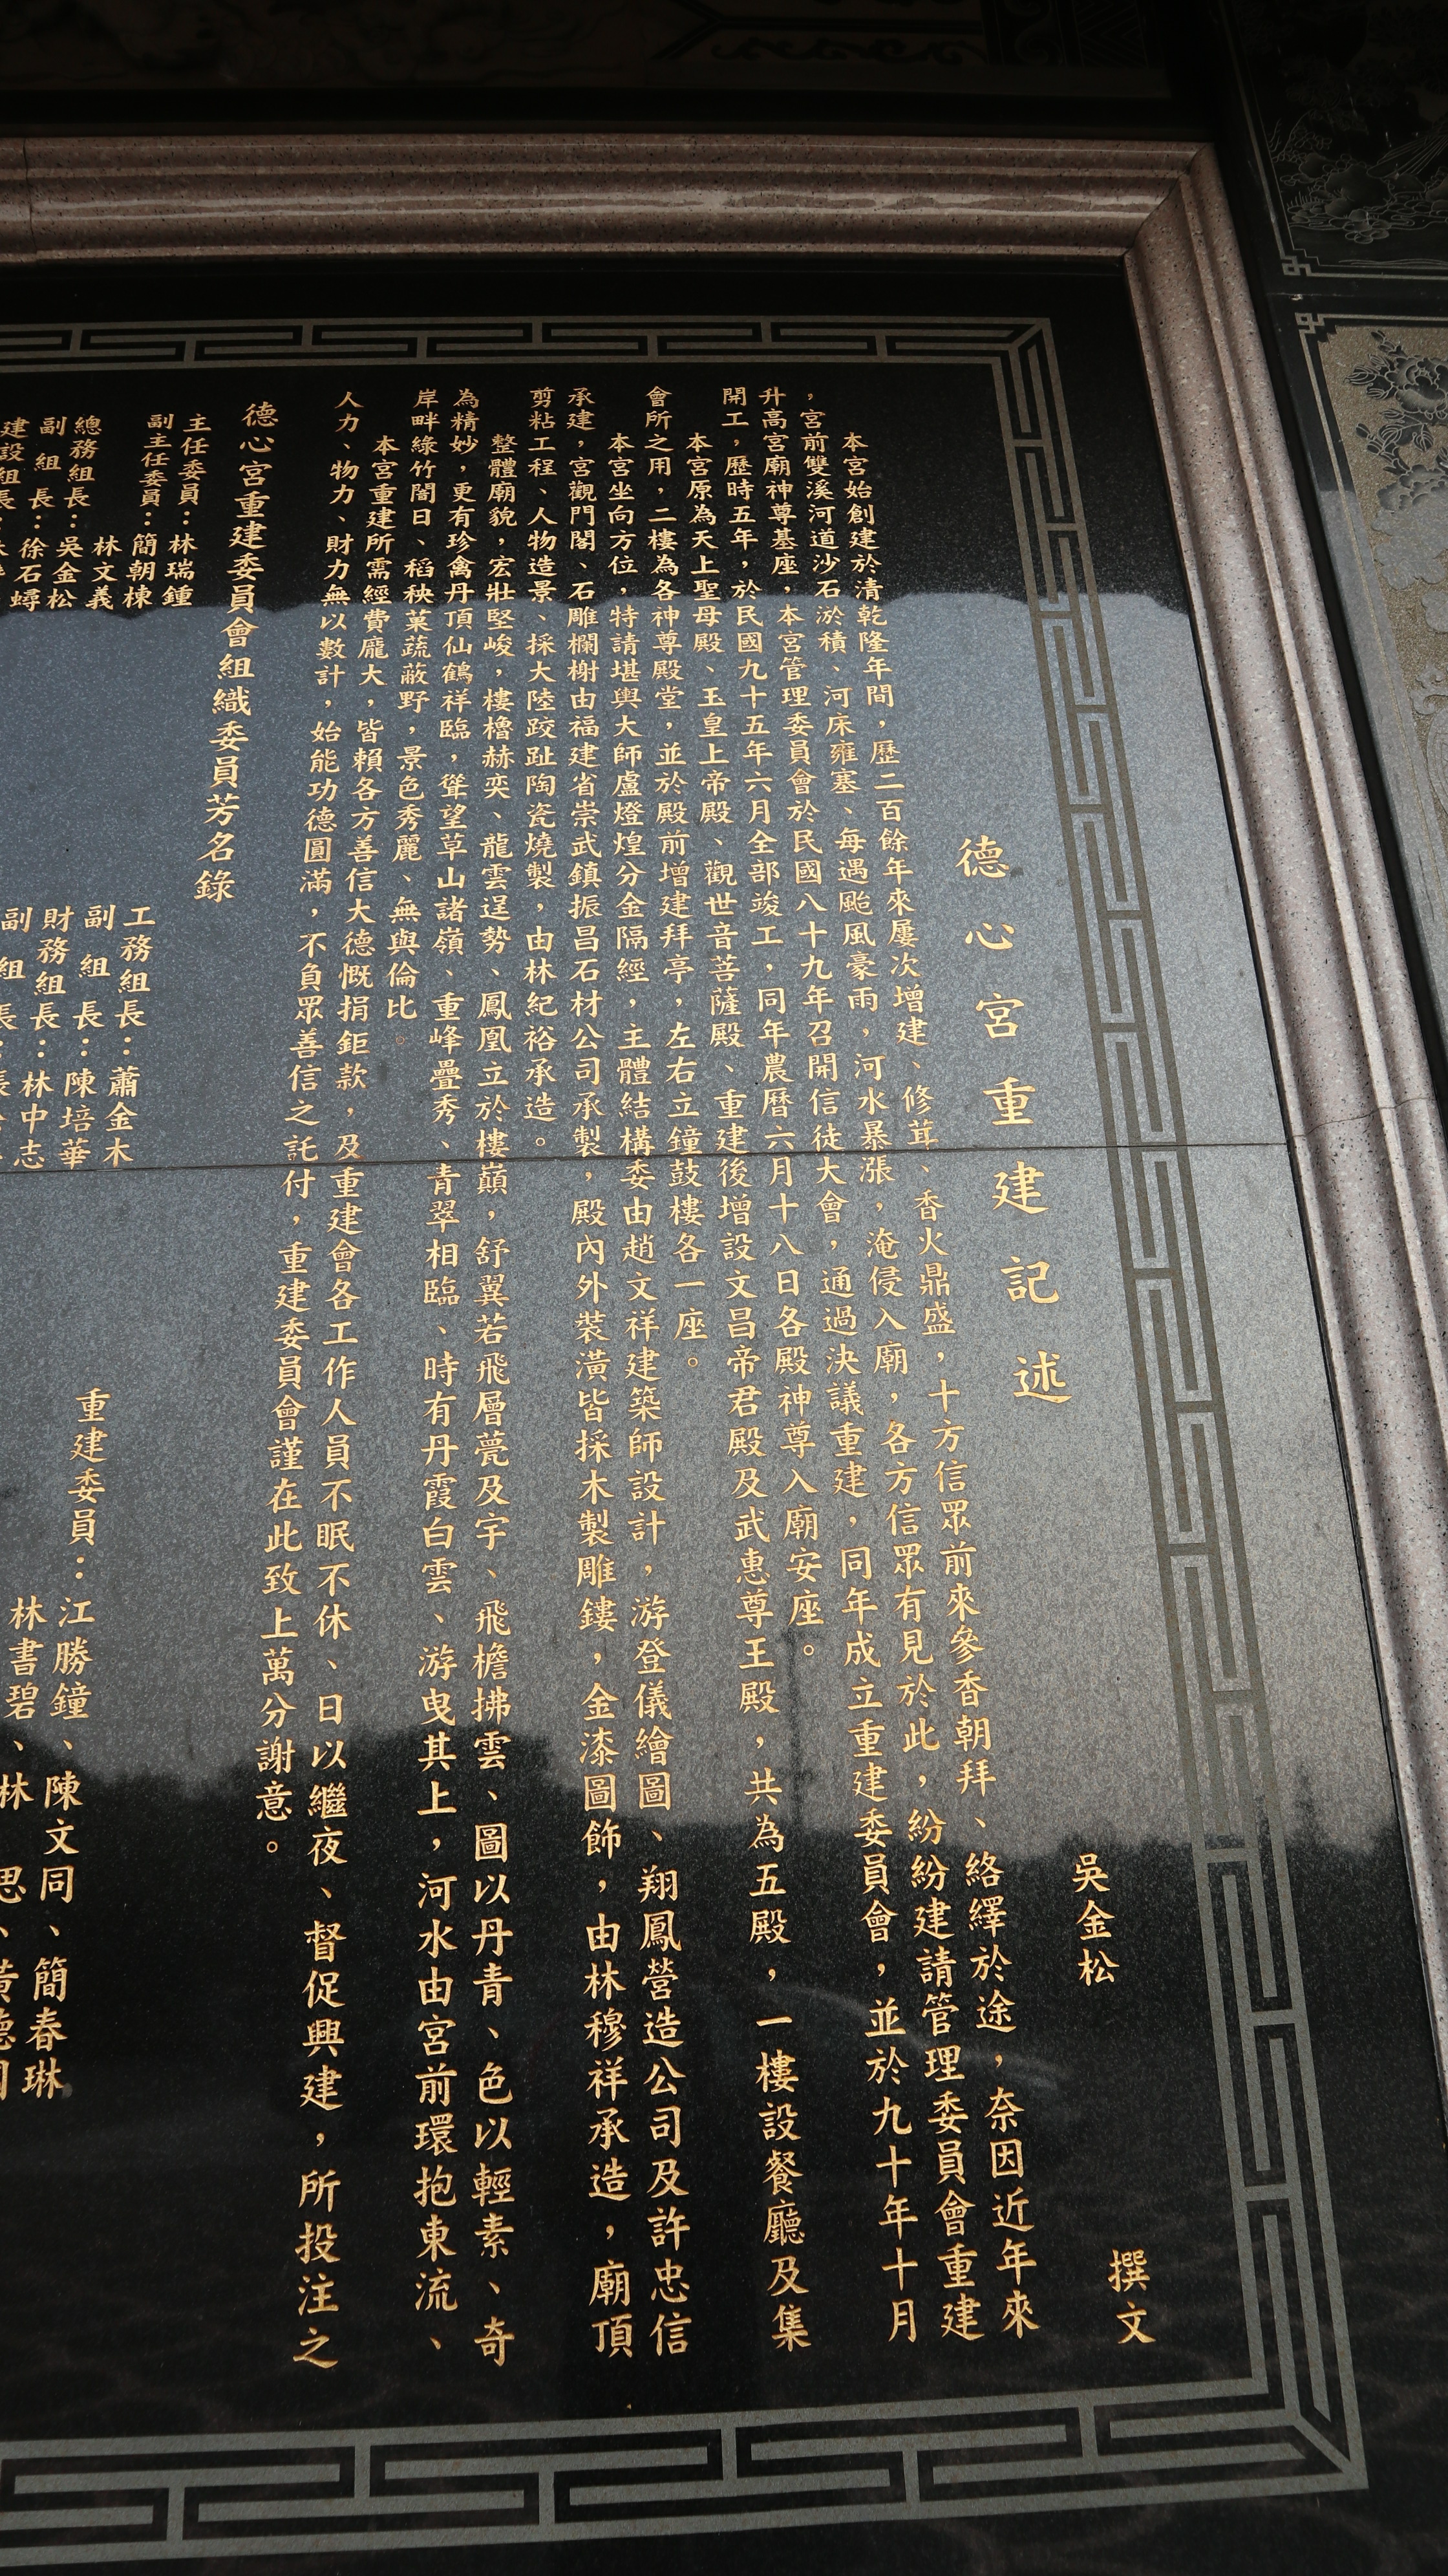 德心宮重建記述
吳金松 撰文
本宮始創建於清乾隆年間，歷二百餘年來屢次增建、修茸、香火鼎盛，十方信眾前來參香朝拜、絡繹於途，奈因近年來
，宮前雙溪河道沙石淤積、河床雍塞、每遇颱風豪雨，河水暴漲，淹侵入廟，各方信眾有見於此，紛紛建請管理委員會重建
升高宮廟神尊基座，本宮管理委員會於民國八十九年召開信徒大會，通過決議重建，同年成立重建委員會，並於九十年十月
開工，歷時五年，於民國九十五年六月全部竣工，同年農曆六月十八日各殿神尊入廟安座。
本宮原為天上聖母殿、玉皇上帝殿、觀世音菩薩殿、重建後增設文昌帝君殿及武惠尊王殿，共為五殿，一樓設餐廳及集
會所之用，二樓為各神尊殿堂，並於殿前增建拜亭，左右立鐘鼓樓各一座。
本宮坐向方位，特請堪輿大師盧燈煌分金隔經，主體結構委由趙文祥建築師設計，游登儀繪圖、翔鳳營造公司及許忠信
承建，宮觀門閣、石雕欄榭由福建省崇武鎮振昌石材公司承製，殿內外裝潢皆採木製雕鏤，金漆圖飾，由林穆祥承造，廟頂
剪粘工程、人物造景、採大陸跤趾陶瓷燒製，由林紀裕承造。
整體廟貌，宏壯堅峻，樓櫓赫奕、龍雲逞勢、鳳凰立於樓巔，舒翼若飛層甍及宇、飛檐拂雲、圖以丹青、色以輕素、奇
為精妙，更有珍禽丹頂仙鶴祥臨，聳望草山諸嶺、重峰疊秀、青翠相臨、時有丹霞白雲、游曳其上，河水由宮前環抱東流、
岸畔綠竹闇日、稻秧菓蔬蔽野，景色秀麗、無與倫比。
本宮重建所需經費龐大，皆賴各方善信大德慨捐鉅款，及重建會各工作人員不眠不休、日以繼夜、督促興建，所投注之
人力、物力、財力無以數計，始能功德圓滿，不負眾善信之託付，重建委員會謹在此致上萬分謝意。
德心宮重建委員會組織委員芳名錄
主任委員：林瑞鍾
副主任委員：簡朝棟
林文義
總務組長：吳金松
副組長：徐石蟳
建設組長：
工務組長：蕭金木
副組長：陳培華
財務組長：林中志
副組長：張
重建委員：江勝鐘、陳文同、簡春琳
林書碧、林 思、黃德